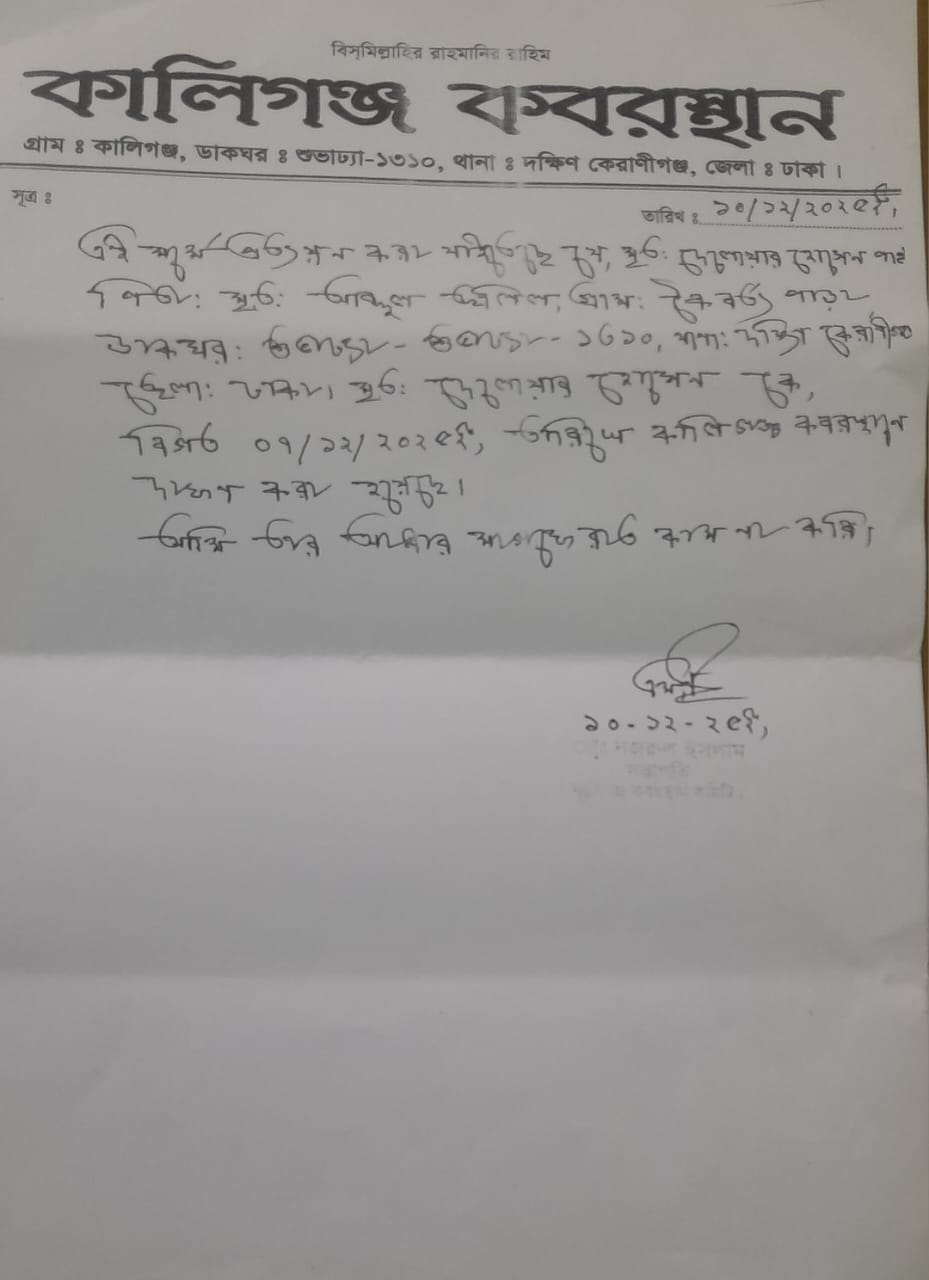 বিসমিল্লাহির রাহমানির রাহিম
কালিগঞ্জ কবরস্থান
গ্রাম ঃ কালিগঞ্জ, ডাকঘর ঃ শুভাঢ্যা-১৩১০, থানা ঃ দক্ষিণ কেরাণীগঞ্জ, জেলা ঃ ঢাকা ।
সূত্র ঃ
তারিখ ঃ ১০/১২/২০২৫ইং,
এই মর্মে প্রত্যয়ন করা যাইতেছে যে, মৃত: দেলোয়ার হোসেন
পিতা: মৃত: আব্দুল জলিল, গ্রাম: কৈবর্ত্য পাড়া
ডাকঘর: শুভাঢ্যা- শুভাঢ্যা- ১৩১০, থানা: দক্ষিণ কেরাণীগঞ্জ
জেলা: ঢাকা। মৃত: দেলোয়ার হোসেন কে,
বিগত ০৭/১২/২০২৫ইং, তারিখে কালিগঞ্জ কবরস্থানে
দাফন করা হয়েছে।
আমি তার আত্মার মাগফেরাত কামনা করি।
১০-১২-২৫ইং,
ইসলাম
সভাপতি